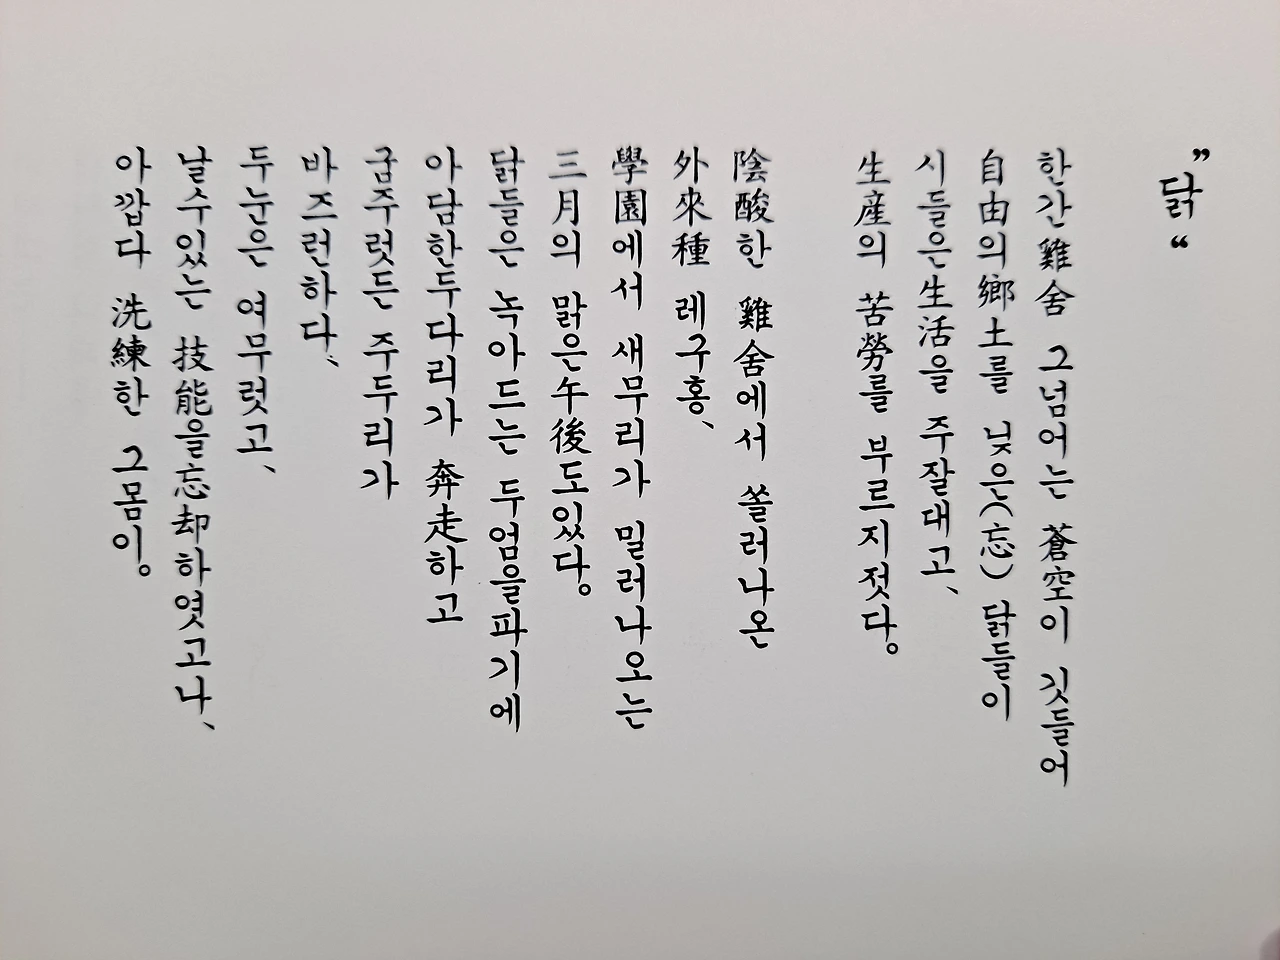 "닭"
한간鷄舍 그넘어는 蒼空이 깃들어
自由의鄕土를 닞은(忘) 닭들이
시들은生活을 주잘대고、
生産의 苦勞를 부르지젓다。
陰酸한 鷄舍에서 쏠러나온
外來種 레구홍、
學園에서 새무리가 밀러나오는
三月의 맑은午後도있다。
닭들은 녹아드는 두엄을파기에
아담한두다리가 奔走하고
굼주렷든 주두리가
바즈런하다、
두눈은 여무럿고、
날수있는 技能을忘却하엿고나、
아깝다 洗練한 그몸이。